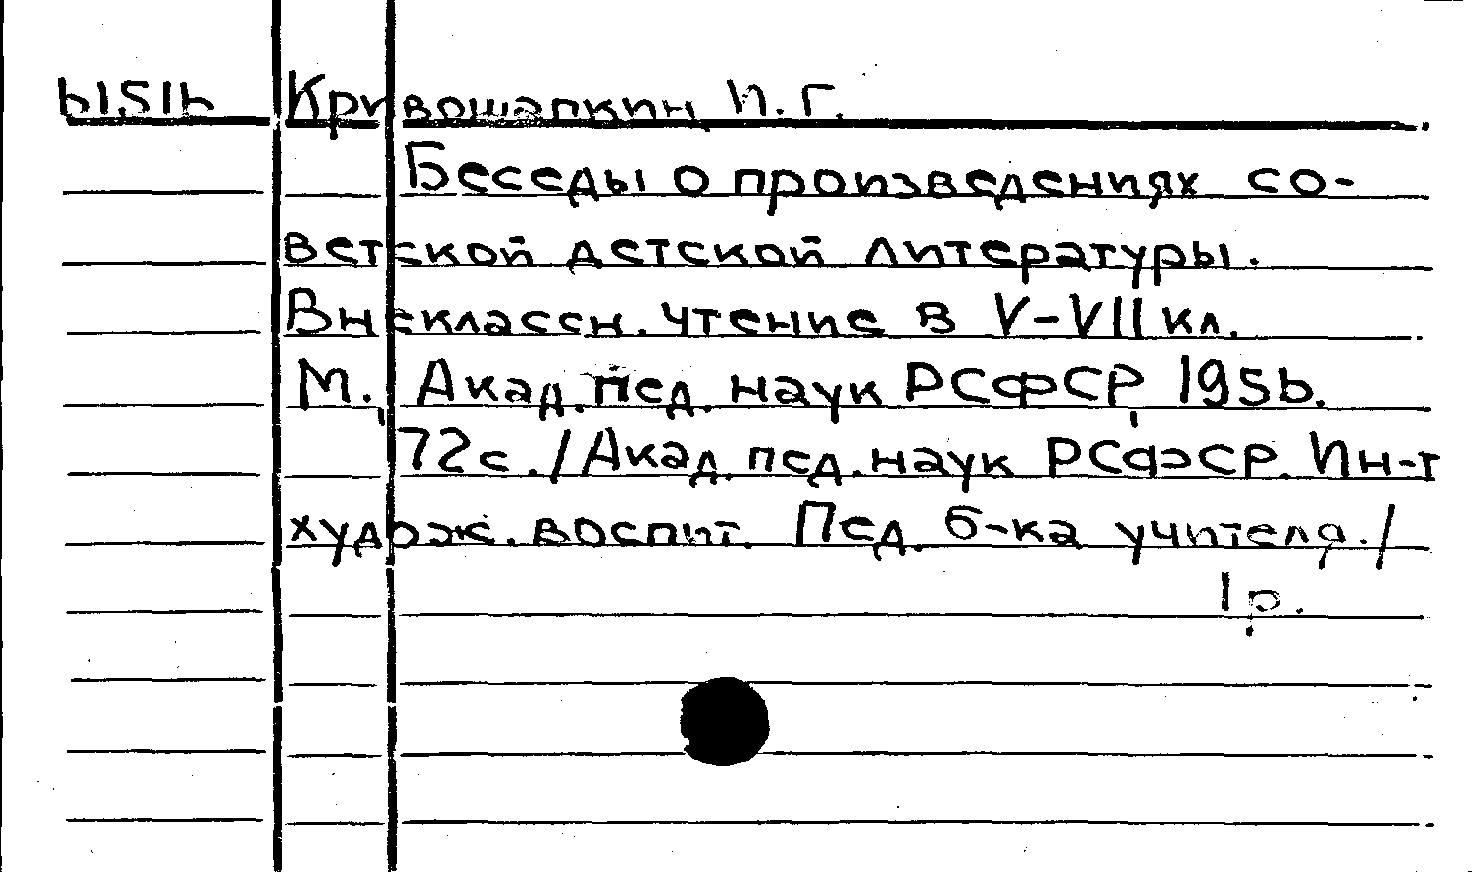 61516 Кривошапкин И. Г.
Беседы о произведениях со-
ветской детской литературы.
Внеклассн. чтение в V-VII кл.
М., Акад. пед. наук РСФСР, 1956.
72с. /Акад. пед. наук РСФСР. Ин-т
худож. воспит. Пед. б-ка учителя./
1р.